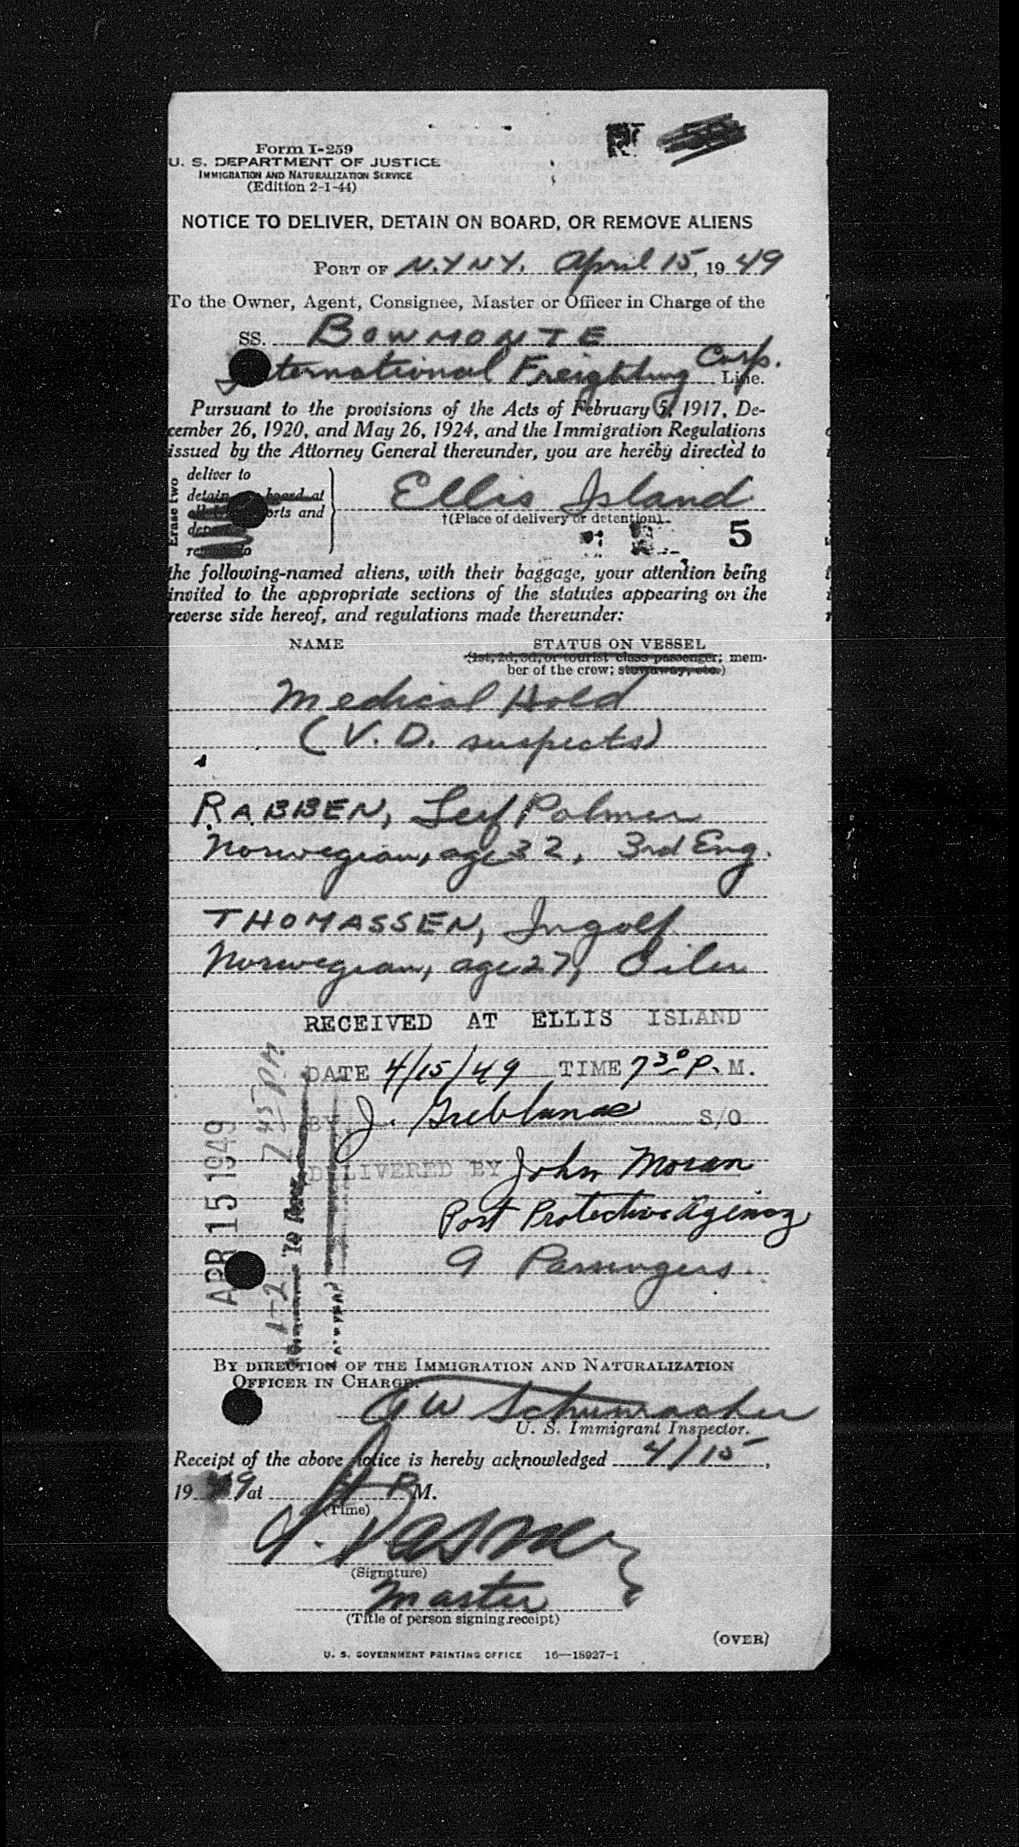 Form I-259
U. S. DEPARTMENT OF JUSTICE
IMMIGRATION AND NATURALIZATION SERVICE
(Edition 2-1-44)
NOTICE TO DELIVER, DETAIN ON BOARD, OR REMOVE ALIENS
PORT OF N.Y.N.Y. April 15, 1949
To the Owner, Agent, Consignee, Master or Officer in Charge of the
SS. BOWMONTE
International Freighting Corp. Line.
Pursuant to the provisions of the Acts of February 5, 1917, De-
cember 26, 1920, and May 26, 1924, and the Immigration Regulations
issued by the Attorney General thereunder, you are hereby directed to
Erase two
deliver to
detain board at
ports and
Ellis Island
†(Place of delivery or detention)
5
the following-named aliens, with their baggage, your attention being
invited to the appropriate sections of the statutes appearing on the
reverse side hereof, and regulations made thereunder:
NAME STATUS ON VESSEL
(1st, 2d, 3d, or tourist class passenger; mem-
ber of the crew; stowaway, etc.)
Medical Hold
(V.D. suspects)
RABBEN, Leif Palmer
Norwegian, age 32, 3rd Eng.
THOMASSEN, Ingolf
Norwegian, age 27, Oiler
RECEIVED AT ELLIS ISLAND
DATE 4/15/49 TIME 7 30 P. M.
BY J. S/O
DELIVERED BY John Moran
Port Protective Agency
9 Passengers
APR 15 1949
7 45 PM
BY DIRECTION OF THE IMMIGRATION AND NATURALIZATION
OFFICER IN CHARGE.
GW Schumacher
U. S. Immigrant Inspector.
Receipt of the above notice is hereby acknowledged 4/15,
1949 at P M.
(Time)
(Signature)
Master
(Title of person signing receipt)
(OVER)
U. S. GOVERNMENT PRINTING OFFICE 16—18927-1